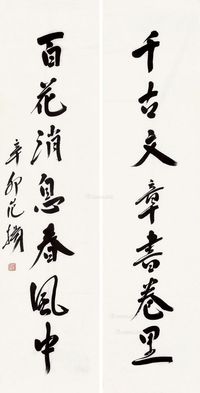 千古文章書卷里
百花消息春風中
辛卯 范曾